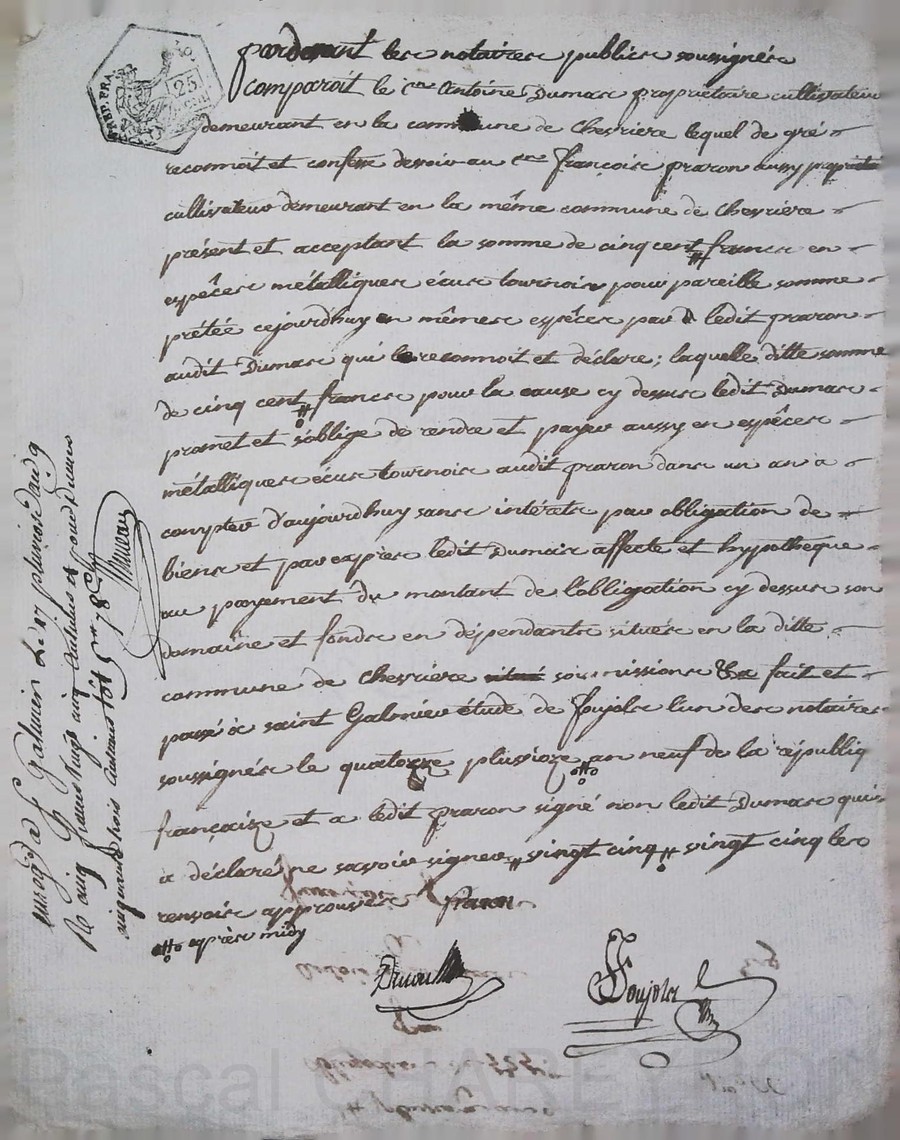 REP. FRA.
25
pardevant les notaires publics soussignés
comparoit le cen Antoine Dumas propriétaire cultivateur
demeurant en la commune de Chevriere lequel de gré
reconnoit et confesse devoir au cen françois praron aussy propriétaire
cultivateur demeurant en la même commune de Chevriere
présent et acceptant la somme de cinq cent francs en
espêces métalliques écus tournois pour pareille somme
prétée cejourdhuy en mêmes espêces par ledit praron
audit Dumas qui le reconnoit et déclare; laquelle ditte somme
de cinq cent francs pour la cause cy dessus ledit Dumas
promet et s'oblige de rendre et payer aussy en espêces
métalliques écus tournois audit praron dans un an a
compter d'aujourdhuy sans intérêts par obligation de
biens et par exprès ledit Dumas affecte et hypothèque
au payement du montant de l'obligation cy dessus son
domaine et fonds en dépendants situés en la ditte
commune de Chevriere soumissions &a fait et
passé a saint Galmier étude de Foujols l'un des notaires
soussignés le quatorze pluvioze an neuf de la républiq
françaize et a ledit praron signé non ledit Dumas qui
a déclaré ne savoir signer vingt cinq vingt cinq les
renvois approuvés praron
après midy
Foujols
enregé a St Galmier le 17 pluviose an 9
R cinq francs vingt cinq centimes et pour
cinquante trois centimes tot 5 fr 78 c
Pascal CHAREYRON